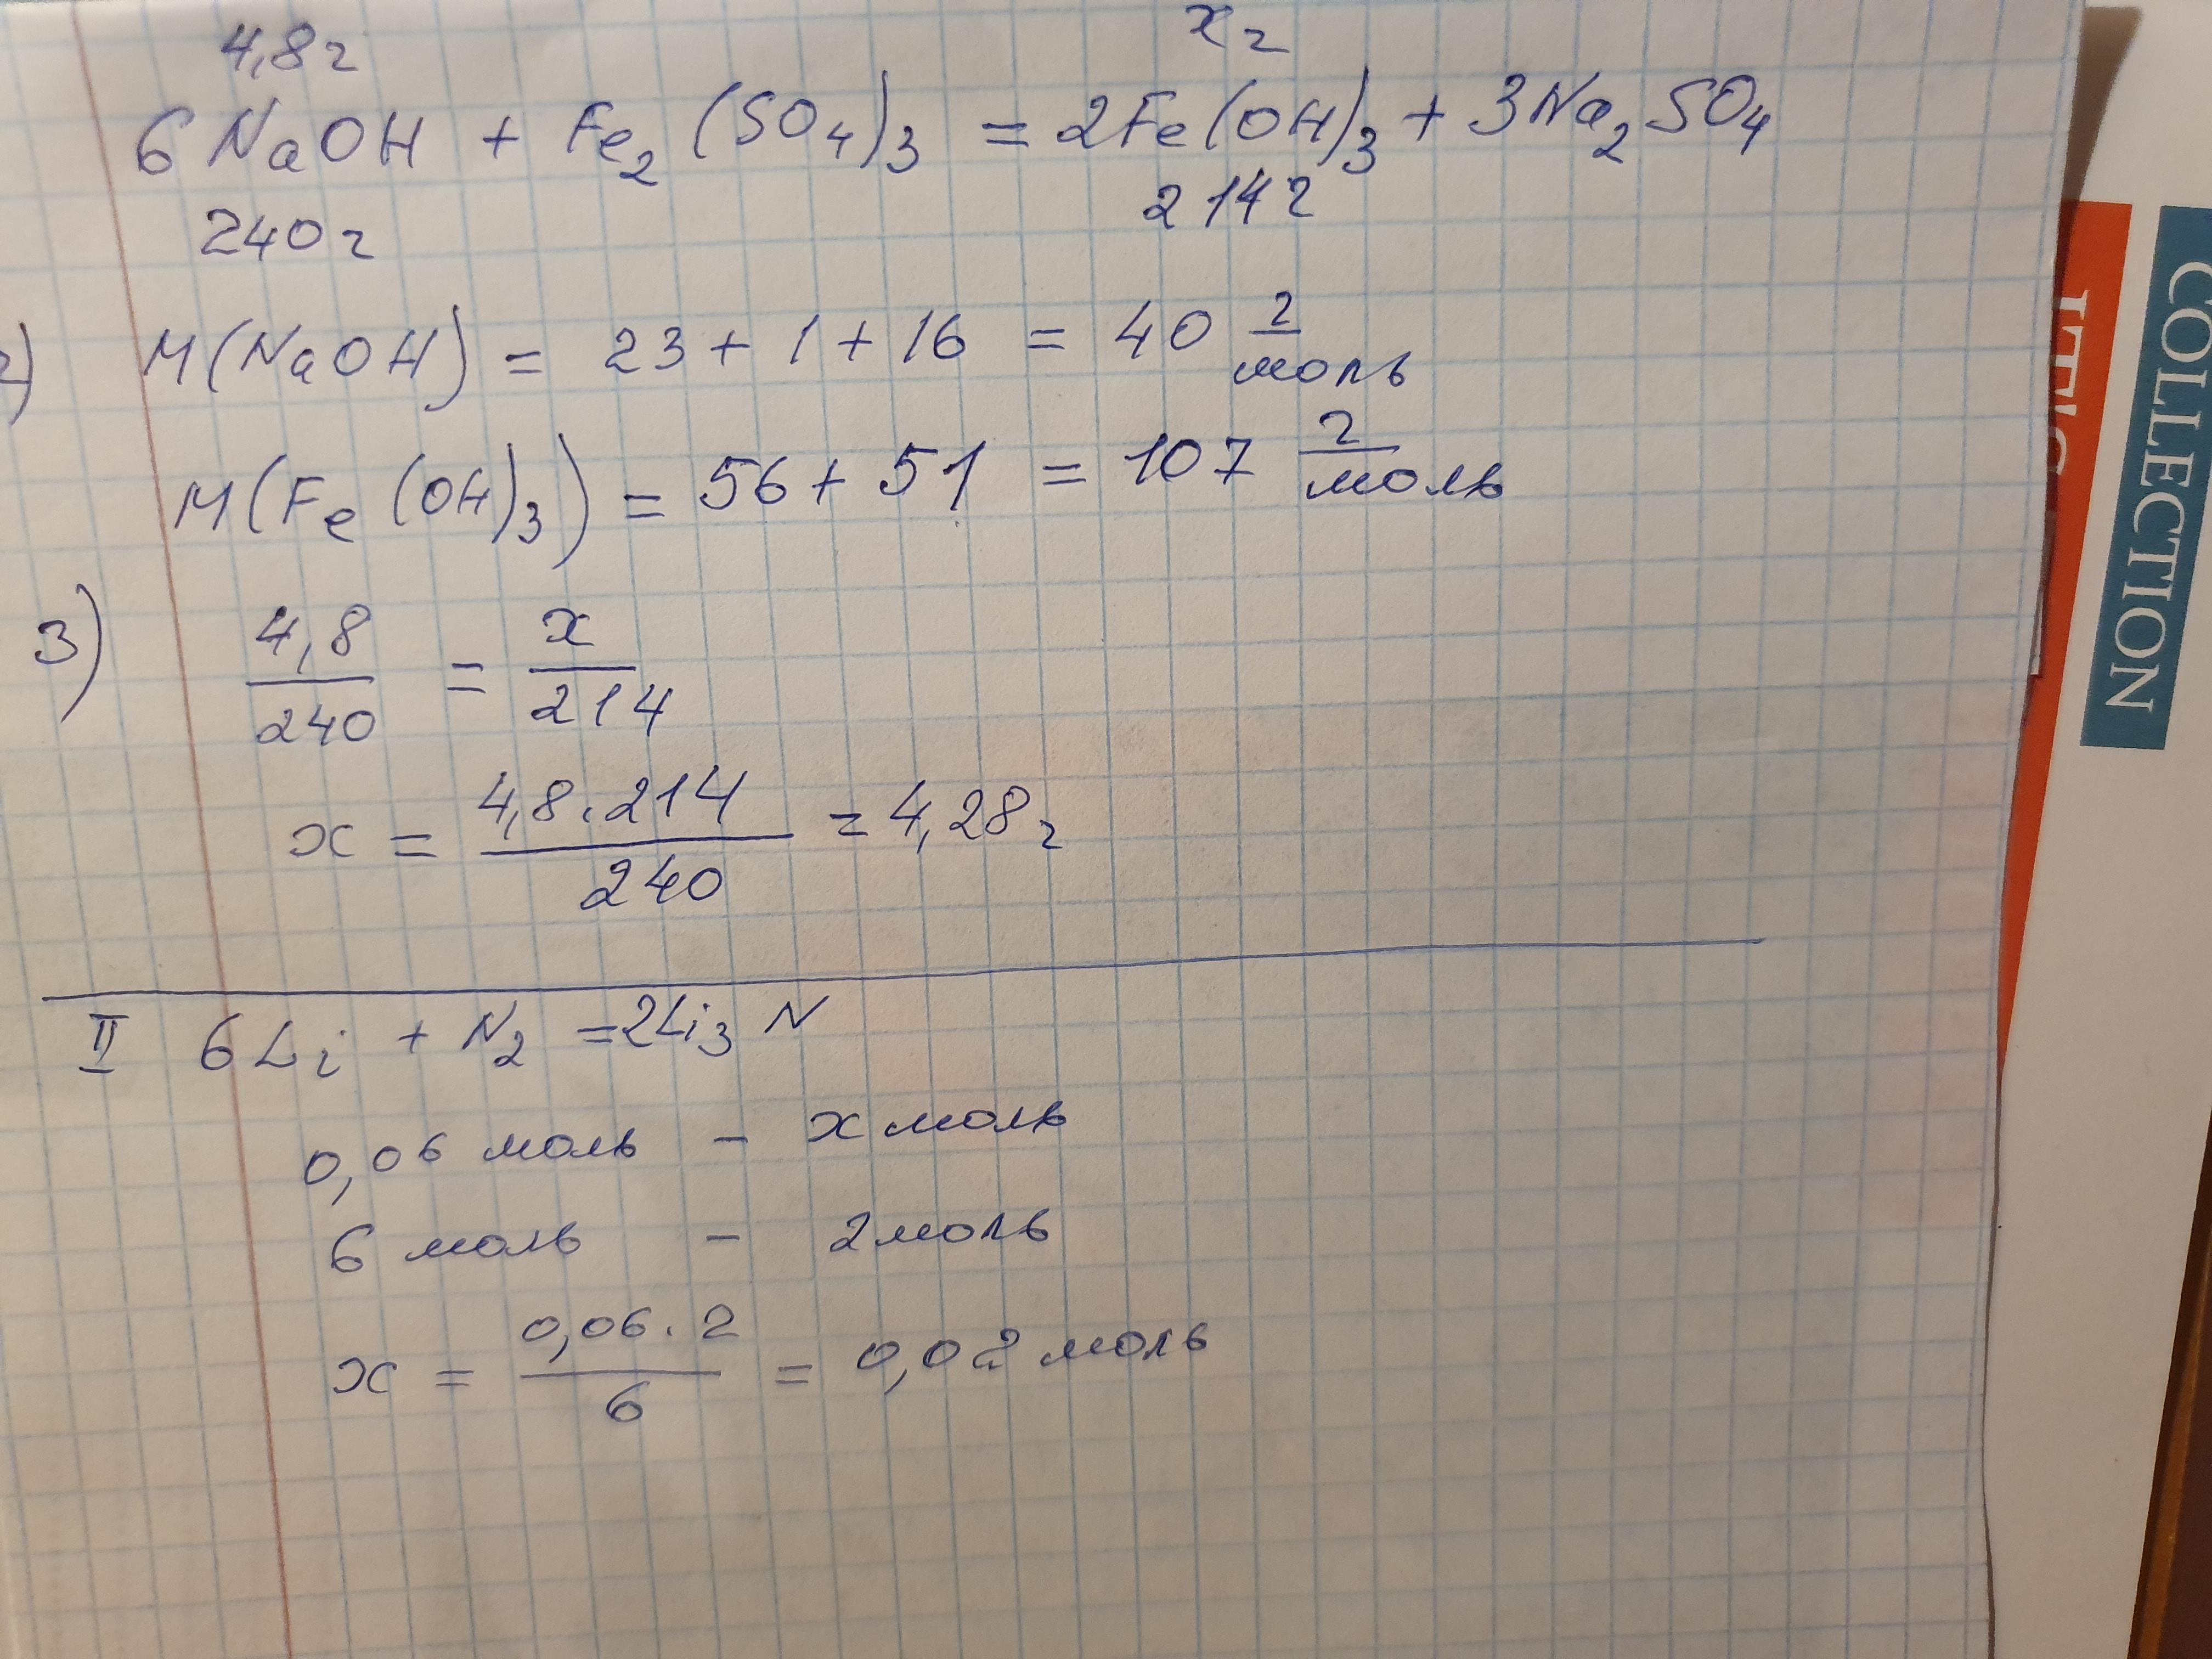 4,8г хг
6NaOH + Fe₂(SO₄)₃ = 2Fe(OH)₃ + 3Na₂SO₄
240г 214г
2) M(NaOH) = 23 + 1 + 16 = 40 г/моль
M(Fe(OH)₃) = 56 + 51 = 107 г/моль
3) 4,8/240 = x/214
x = 4,8·214/240 = 4,28г
II 6Li + N₂ = 2Li₃N
0,06 моль - x моль
6 моль - 2 моль
x = 0,06·2/6 = 0,02 моль
COLLECTION